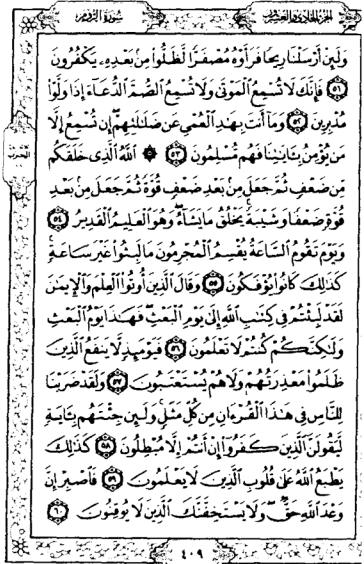 الجزء الحادي والعشرون
سورة الروم
وَلَئِنْ أَرْسَلْنَا رِيحًا فَرَأَوْهُ مُصْفَرًّا لَّظَلُّوا۟ مِنۢ بَعْدِهِۦ يَكْفُرُونَ
٥١ فَإِنَّكَ لَا تُسْمِعُ ٱلْمَوْتَىٰ وَلَا تُسْمِعُ ٱلصُّمَّ ٱلدُّعَآءَ إِذَا وَلَّوْا۟
مُدْبِرِينَ ٥٢ وَمَآ أَنتَ بِهَٰدِ ٱلْعُمْىِ عَن ضَلَٰلَتِهِمْ إِن تُسْمِعُ إِلَّا
مَن يُؤْمِنُ بِـَٔايَٰتِنَا فَهُم مُّسْلِمُونَ ٥٣ ۞ ٱللَّهُ ٱلَّذِى خَلَقَكُم
مِّن ضَعْفٍ ثُمَّ جَعَلَ مِنۢ بَعْدِ ضَعْفٍ قُوَّةً ثُمَّ جَعَلَ مِنۢ بَعْدِ
قُوَّةٍ ضَعْفًا وَشَيْبَةً يَخْلُقُ مَا يَشَآءُ وَهُوَ ٱلْعَلِيمُ ٱلْقَدِيرُ ٥٤
وَيَوْمَ تَقُومُ ٱلسَّاعَةُ يُقْسِمُ ٱلْمُجْرِمُونَ مَا لَبِثُوا۟ غَيْرَ سَاعَةٍ
كَذَٰلِكَ كَانُوا۟ يُؤْفَكُونَ ٥٥ وَقَالَ ٱلَّذِينَ أُوتُوا۟ ٱلْعِلْمَ وَٱلْإِيمَٰنَ
لَقَدْ لَبِثْتُمْ فِى كِتَٰبِ ٱللَّهِ إِلَىٰ يَوْمِ ٱلْبَعْثِ فَهَٰذَا يَوْمُ ٱلْبَعْثِ
وَلَٰكِنَّكُمْ كُنتُمْ لَا تَعْلَمُونَ ٥٦ فَيَوْمَئِذٍ لَّا يَنفَعُ ٱلَّذِينَ
ظَلَمُوا۟ مَعْذِرَتُهُمْ وَلَا هُمْ يُسْتَعْتَبُونَ ٥٧ وَلَقَدْ ضَرَبْنَا
لِلنَّاسِ فِى هَٰذَا ٱلْقُرْءَانِ مِن كُلِّ مَثَلٍ وَلَئِن جِئْتَهُم بِـَٔايَةٍ
لَّيَقُولَنَّ ٱلَّذِينَ كَفَرُوٓا۟ إِنْ أَنتُمْ إِلَّا مُبْطِلُونَ ٥٨ كَذَٰلِكَ
يَطْبَعُ ٱللَّهُ عَلَىٰ قُلُوبِ ٱلَّذِينَ لَا يَعْلَمُونَ ٥٩ فَٱصْبِرْ إِنَّ
وَعْدَ ٱللَّهِ حَقٌّ وَلَا يَسْتَخِفَّنَّكَ ٱلَّذِينَ لَا يُوقِنُونَ ٦٠
٤٠٩